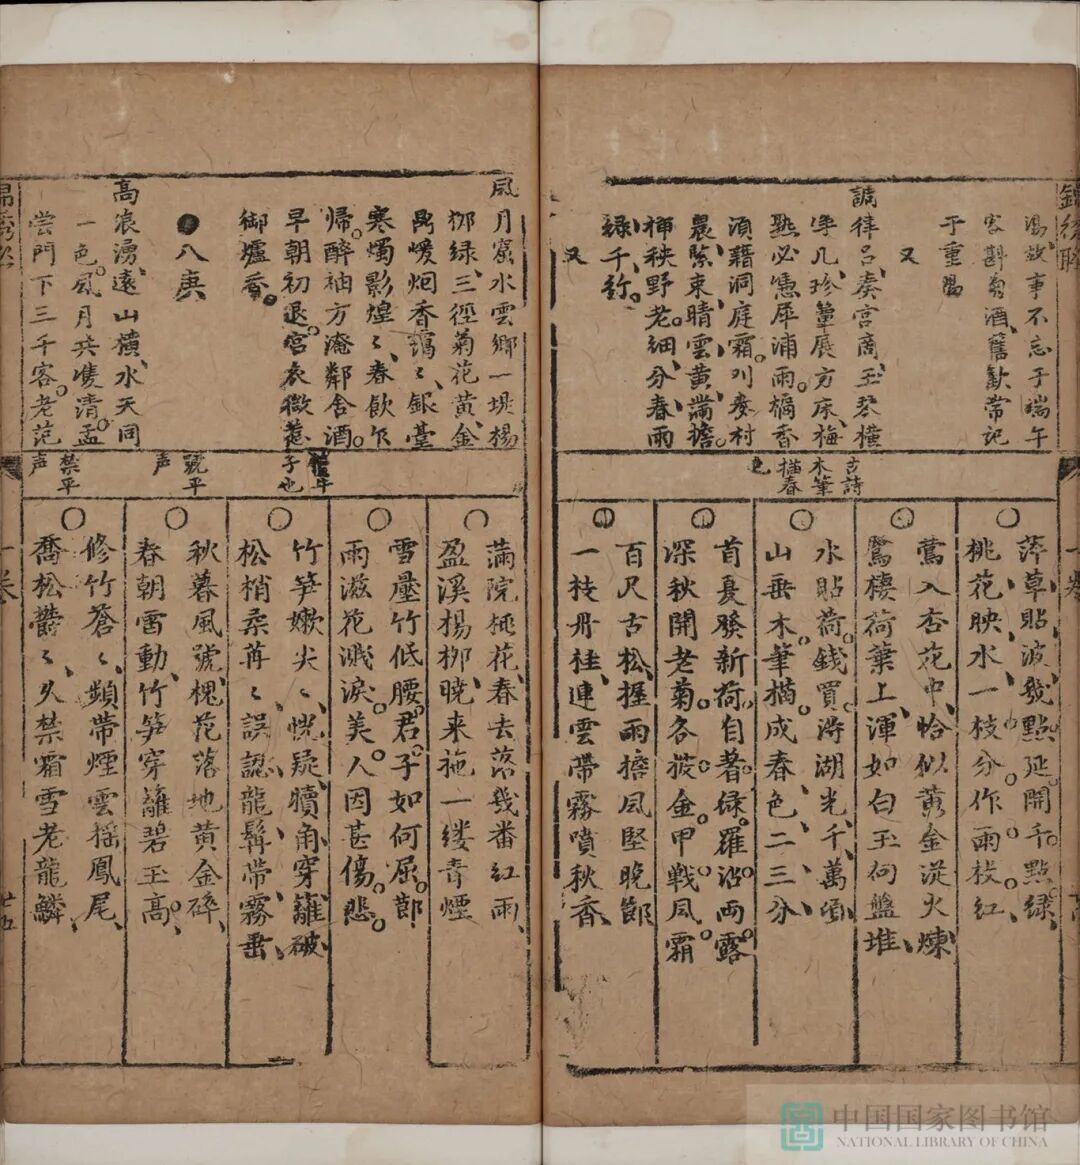 鴻故事不忘于端午
客斟匊酒、舊歓常記
于重陽
又
調律呂奏宮商玉琴橫
浄几、珍簟展方床、梅
熟必慿犀浦雨。橘香
須籍洞庭霜。刈麥村
晨、緊束晴雲黄滿擔。
挿秧野老、細分春雨
緑千行。
又
古詩
木筆
描春
色
萍草貼波、幾點延開千點綠、
桃花映水、一枝分作兩枝紅、
鶯入杏花中、恰似黄金淀火煉
鷺棲荷葉上、渾如白玉向盤堆、
水貼荷錢、買滂湖光千萬頃
山垂木筆、描成春色二三分
首夏發新荷、自著綠羅沾雨露
深秋開老菊、各披金甲戰風霜
百尺古松、握雨擔風堅晚節
一枝丹桂、連雲帶霧噴秋香
風月窩水雲鄉一堤楊
栁緑、三徑菊花黄、金
昺煖烟香靄〻、銀臺
寒燭影煌〻、春飲乍
歸。醉袖方淹鄰舍酒。
早朝初退。宮衣微惹
御爐香。
八庚
高浪湧、遠山橫、水天同
一色。風月共雙清。孟
嘗門下三千客。老范
子也
號平
声
禁平
声
滿院桃花、春去落幾番紅雨、
盈溪楊栁、曉来拖一縷青煙
雪壓竹低腰、君子如何屈節
雨滋花濺淚、美人因甚傷悲
竹笋嫩尖〻、恍疑犢角穿籬破
松梢柔苒〻、誤認龍髯帶霧垂
秋暮風號、槐花落地黄金碎、
春朝雷動、竹笋穿籬碧玉高、
修竹蒼〻、頻帶煙雲揺鳳尾、
喬松鬱〻、久禁霜雪老龍鱗
一卷
廿五
中国国家图书馆
NATIONAL LIBRARY OF CHINA